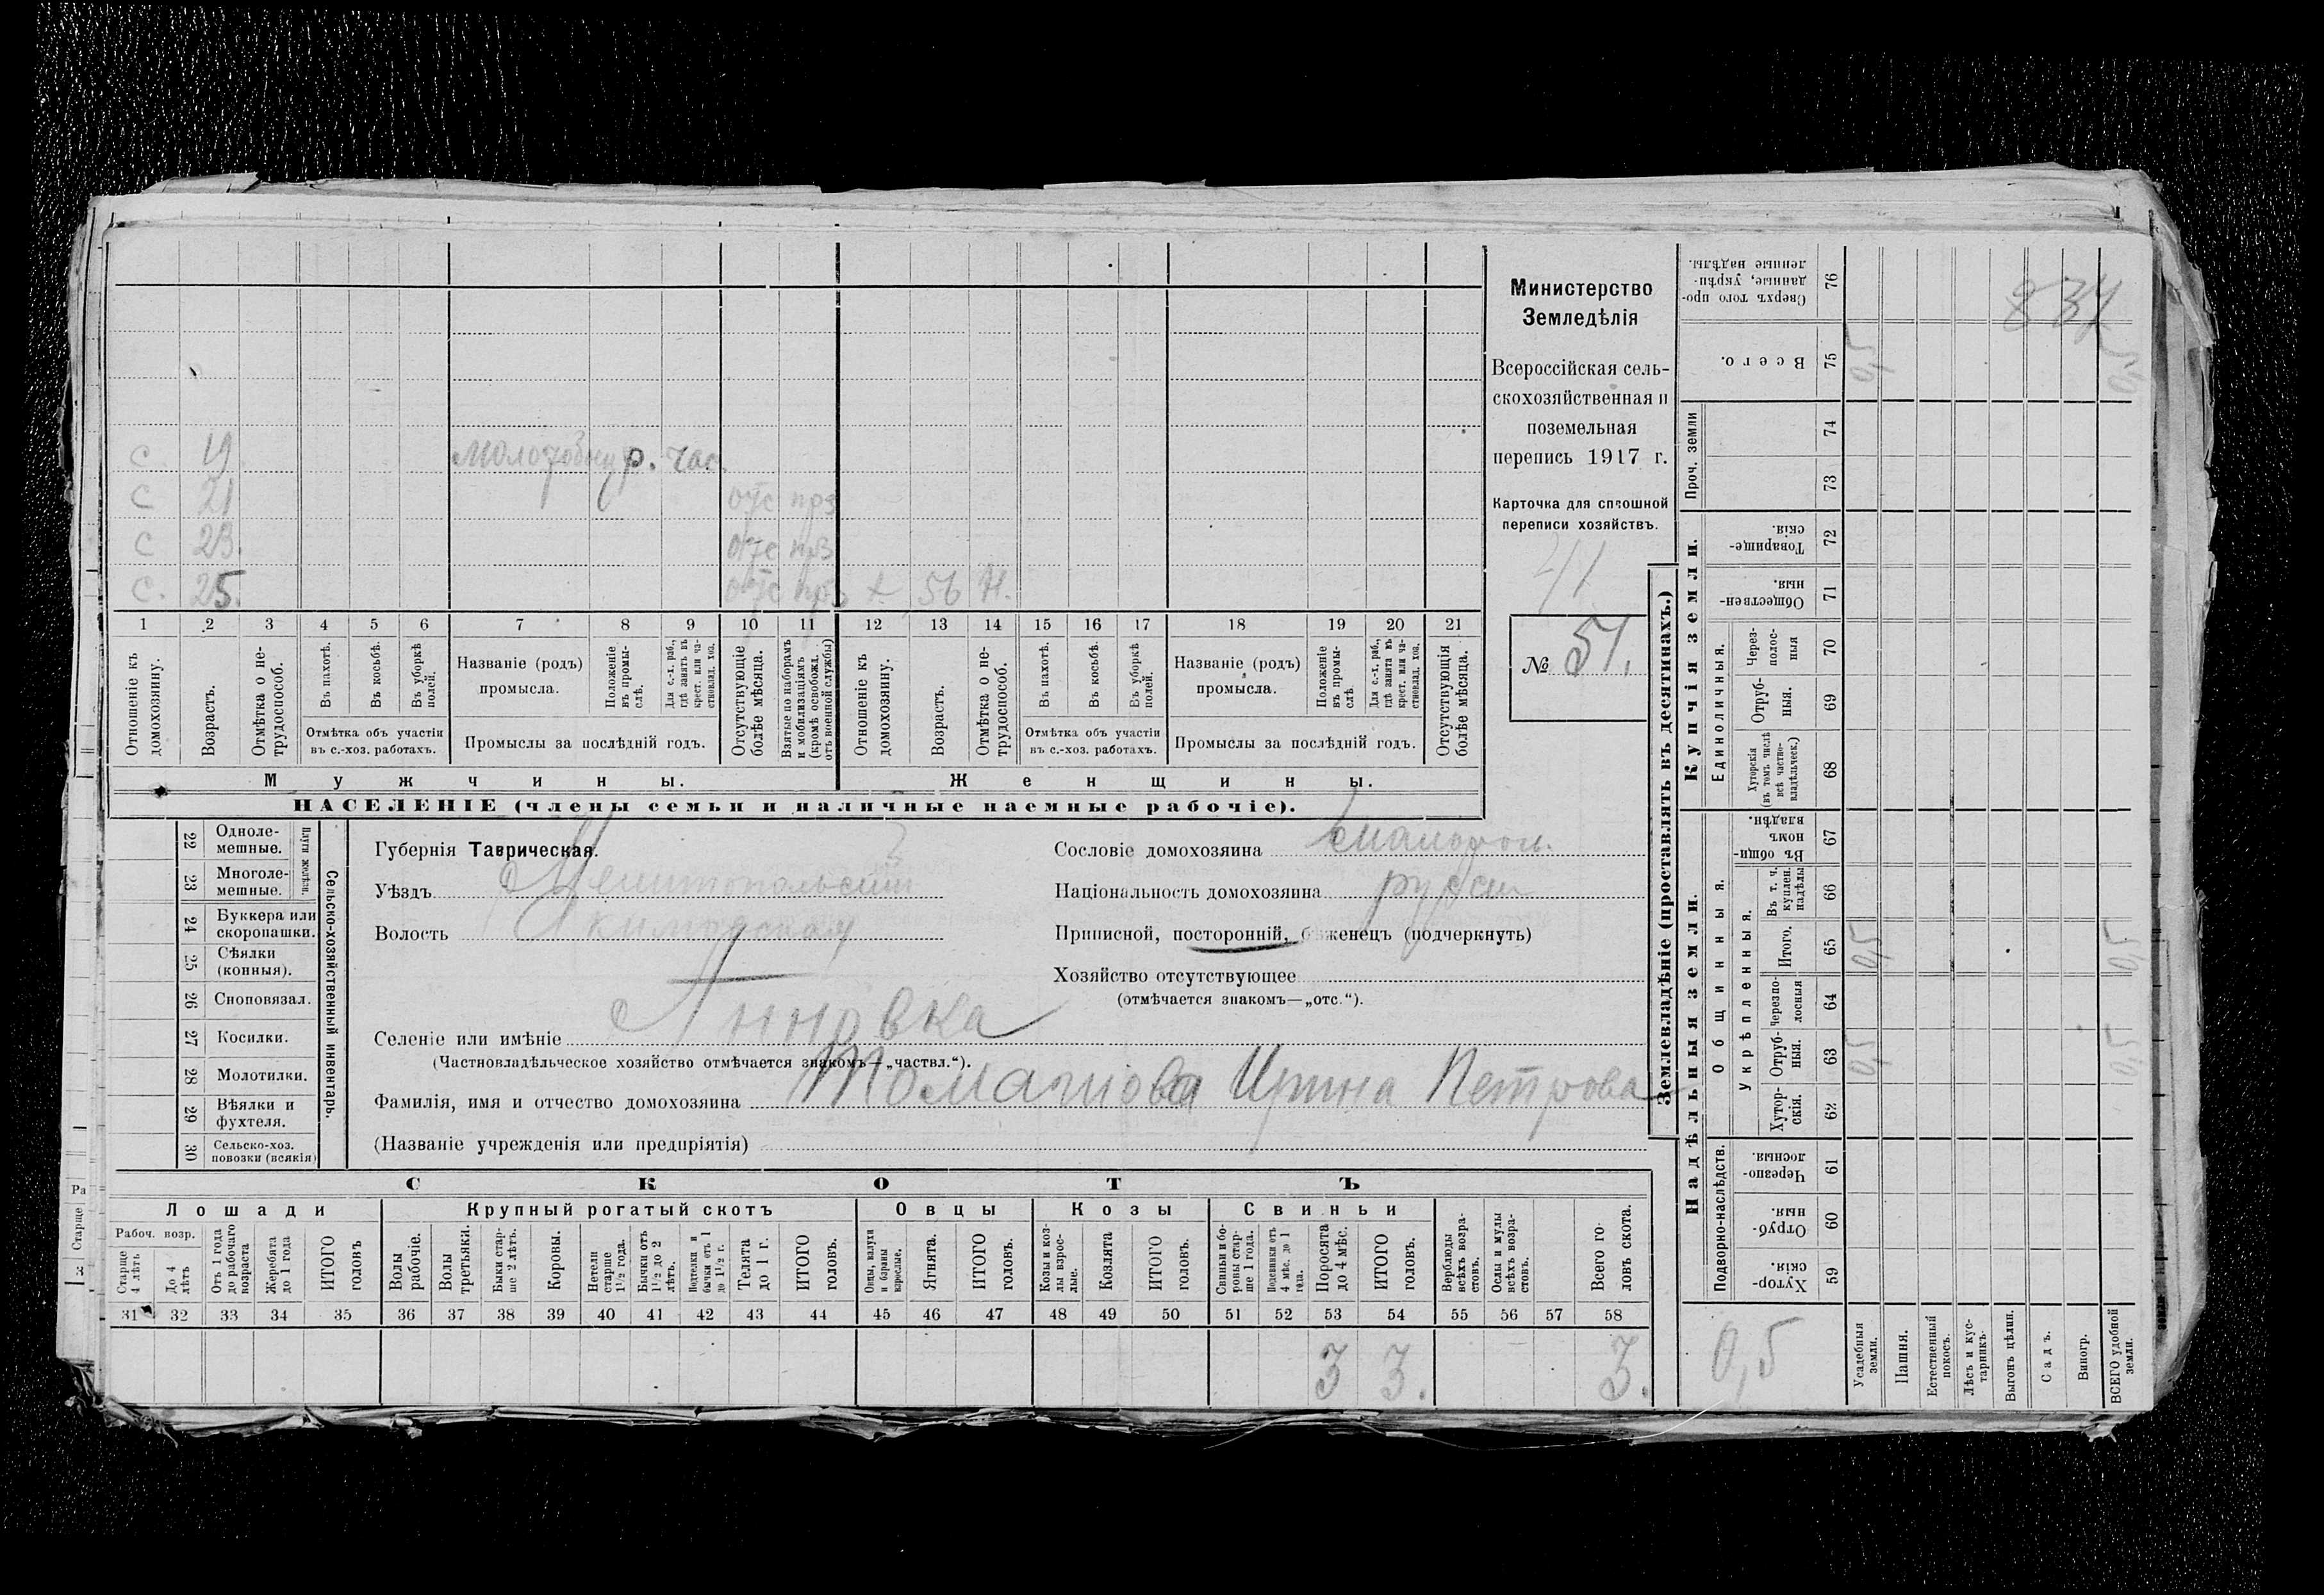 с 19 р. час.
с 21 отс прз
с 23. отс прз
с. 25. отс прз х 56 Н.
1 2 3 4 5 6 7 8 9 10 11 12 13 14 15 16 17 18 19 20 21
Отношеніе къ домохозяину.
Возрастъ.
Отмѣтка о не-
трудоспособ.
Въ пахотѣ.
Въ косьбѣ.
Въ уборкѣ
полей.
Отмѣтка объ участіи
въ с.-хоз. работахъ.
Названіе (родъ)
промысла.
Положеніе
въ промы-
слѣ.
Для с.-х. раб.,
гдѣ занятъ въ
крест. или ча-
стновлад. хоз.
Промыслы за послѣдній годъ.
Отсутствующіе
болѣе мѣсяца.
Взятые по наборамъ
и мобилизаціямъ
(кромѣ освобожд.
отъ военной службы)
Отношеніе къ
домохозяину.
Возрастъ.
Отмѣтка о не-
трудоспособ.
Въ пахотѣ.
Въ косьбѣ.
Въ уборкѣ
полей.
Отмѣтка объ участіи
въ с.-хоз. работахъ.
Названіе (родъ)
промысла.
Положеніе
въ промы-
слѣ.
Для с.-х. раб.,
гдѣ занята въ
крест. или ча-
стновлад. хоз.
Промыслы за послѣдній годъ.
Отсутствующія
болѣе мѣсяца.
Мужчины.
Женщины.
НАСЕЛЕНІЕ (члены семьи и наличные наемные рабочіе).
Министерство
Земледѣлія
Всероссійская сель-
скохозяйственная и
поземельная
перепись 1917 г.
Карточка для сплошной
переписи хозяйствъ.
41
№ 51.
22 Одноле-
мешные.
23 Многоле-
мешные.
Плуги желѣзн.
24 Буккера или
скоропашки.
25 Сѣялки
(конныя).
26 Сноповязал.
27 Косилки.
28 Молотилки.
29 Вѣялки и
фухтеля.
30 Сельско-хоз.
повозки (всякія)
Сельско-хозяйственный инвентарь.
Губернія Таврическая.
Уѣздъ Мелитопольскій
Волость Акимовская
Селеніе или имѣніе Анновка
(Частновладѣльческое хозяйство отмѣчается знакомъ—„частвл.“).
Фамилія, имя и отчество домохозяина Ирина Петрова
(Названіе учрежденія или предпріятія)
Сословіе домохозяина
Національность домохозяина
Приписной, посторонній, бѣженецъ (подчеркнуть)
Хозяйство отсутствующее
(отмѣчается знакомъ—„отс.“).
СКОТЪ
Лошади
Крупный рогатый скотъ
Овцы
Козы
Свиньи
Рабоч. возр.
Старше
4 лѣтъ
До 4
лѣтъ
Отъ 1 года
до рабочаго
возраста
Жеребята
до 1 года
ИТОГО
головъ
Волы
рабочіе.
Волы
третьяки.
Быки стар-
ше 2 лѣтъ.
Коровы.
Нетели
старше
1½ года.
Бычки отъ
1½ до 2
лѣтъ.
Подтелки и
бычки отъ 1
до 1½ г.
Телята
до 1 г.
ИТОГО
головъ.
Овцы, валухи
и бараны
взрослые.
Ягнята.
ИТОГО
головъ.
Козы и коз-
лы взрос-
лые.
Козлята
ИТОГО
головъ.
Свиньи и бо-
ровы стар-
ше 1 года.
Подсвинки отъ
4 мѣс. до 1
года.
Поросята
до 4 мѣс.
ИТОГО
головъ.
Верблюды
всѣхъ возра-
стовъ.
Ослы и мулы
всѣхъ возра-
стовъ.
Всего го-
ловъ скота.
31 32 33 34 35 36 37 38 39 40 41 42 43 44 45 46 47 48 49 50 51 52 53 54 55 56 57 58
3 3. 3.
Землевладѣніе (проставлять въ десятинахъ.)
Купчія земли.
Надѣльныя земли.
Сверхъ того про-
данные, укрѣп-
ленные надѣлы.
76
834
Всего.
75 0,5 0,5
Проч. земли
74
73
Товарище-
скія.
72
Обществен-
ныя.
71
Единоличныя.
Через-
полос-
ныя
70
Отруб-
ныя.
69
Хуторскія
(въ томъ числѣ
всѣ частно-
владѣльческ.)
68
Общинныя.
Въ общин-
номъ
владѣн.
67
Укрѣпленныя.
Въ т. ч.
куплен.
надѣлы
66
Итого.
65 0,5 0,5
Черезпо-
лосныя
64
Отруб-
ныя.
63 0,5 0,5
Хутор-
скія.
62
Подворно-наслѣдств.
Черезпо-
лосныя.
61
Отруб-
ныя.
60
Хутор-
скія.
59
0,5
Усадебныя
земли.
Пашня.
Естественный
покосъ.
Лѣсъ и кус-
тарникъ.
Выгонъ цѣлин.
Садъ.
Виногр.
ВСЕГО удобной
земли.
Ра
Старше